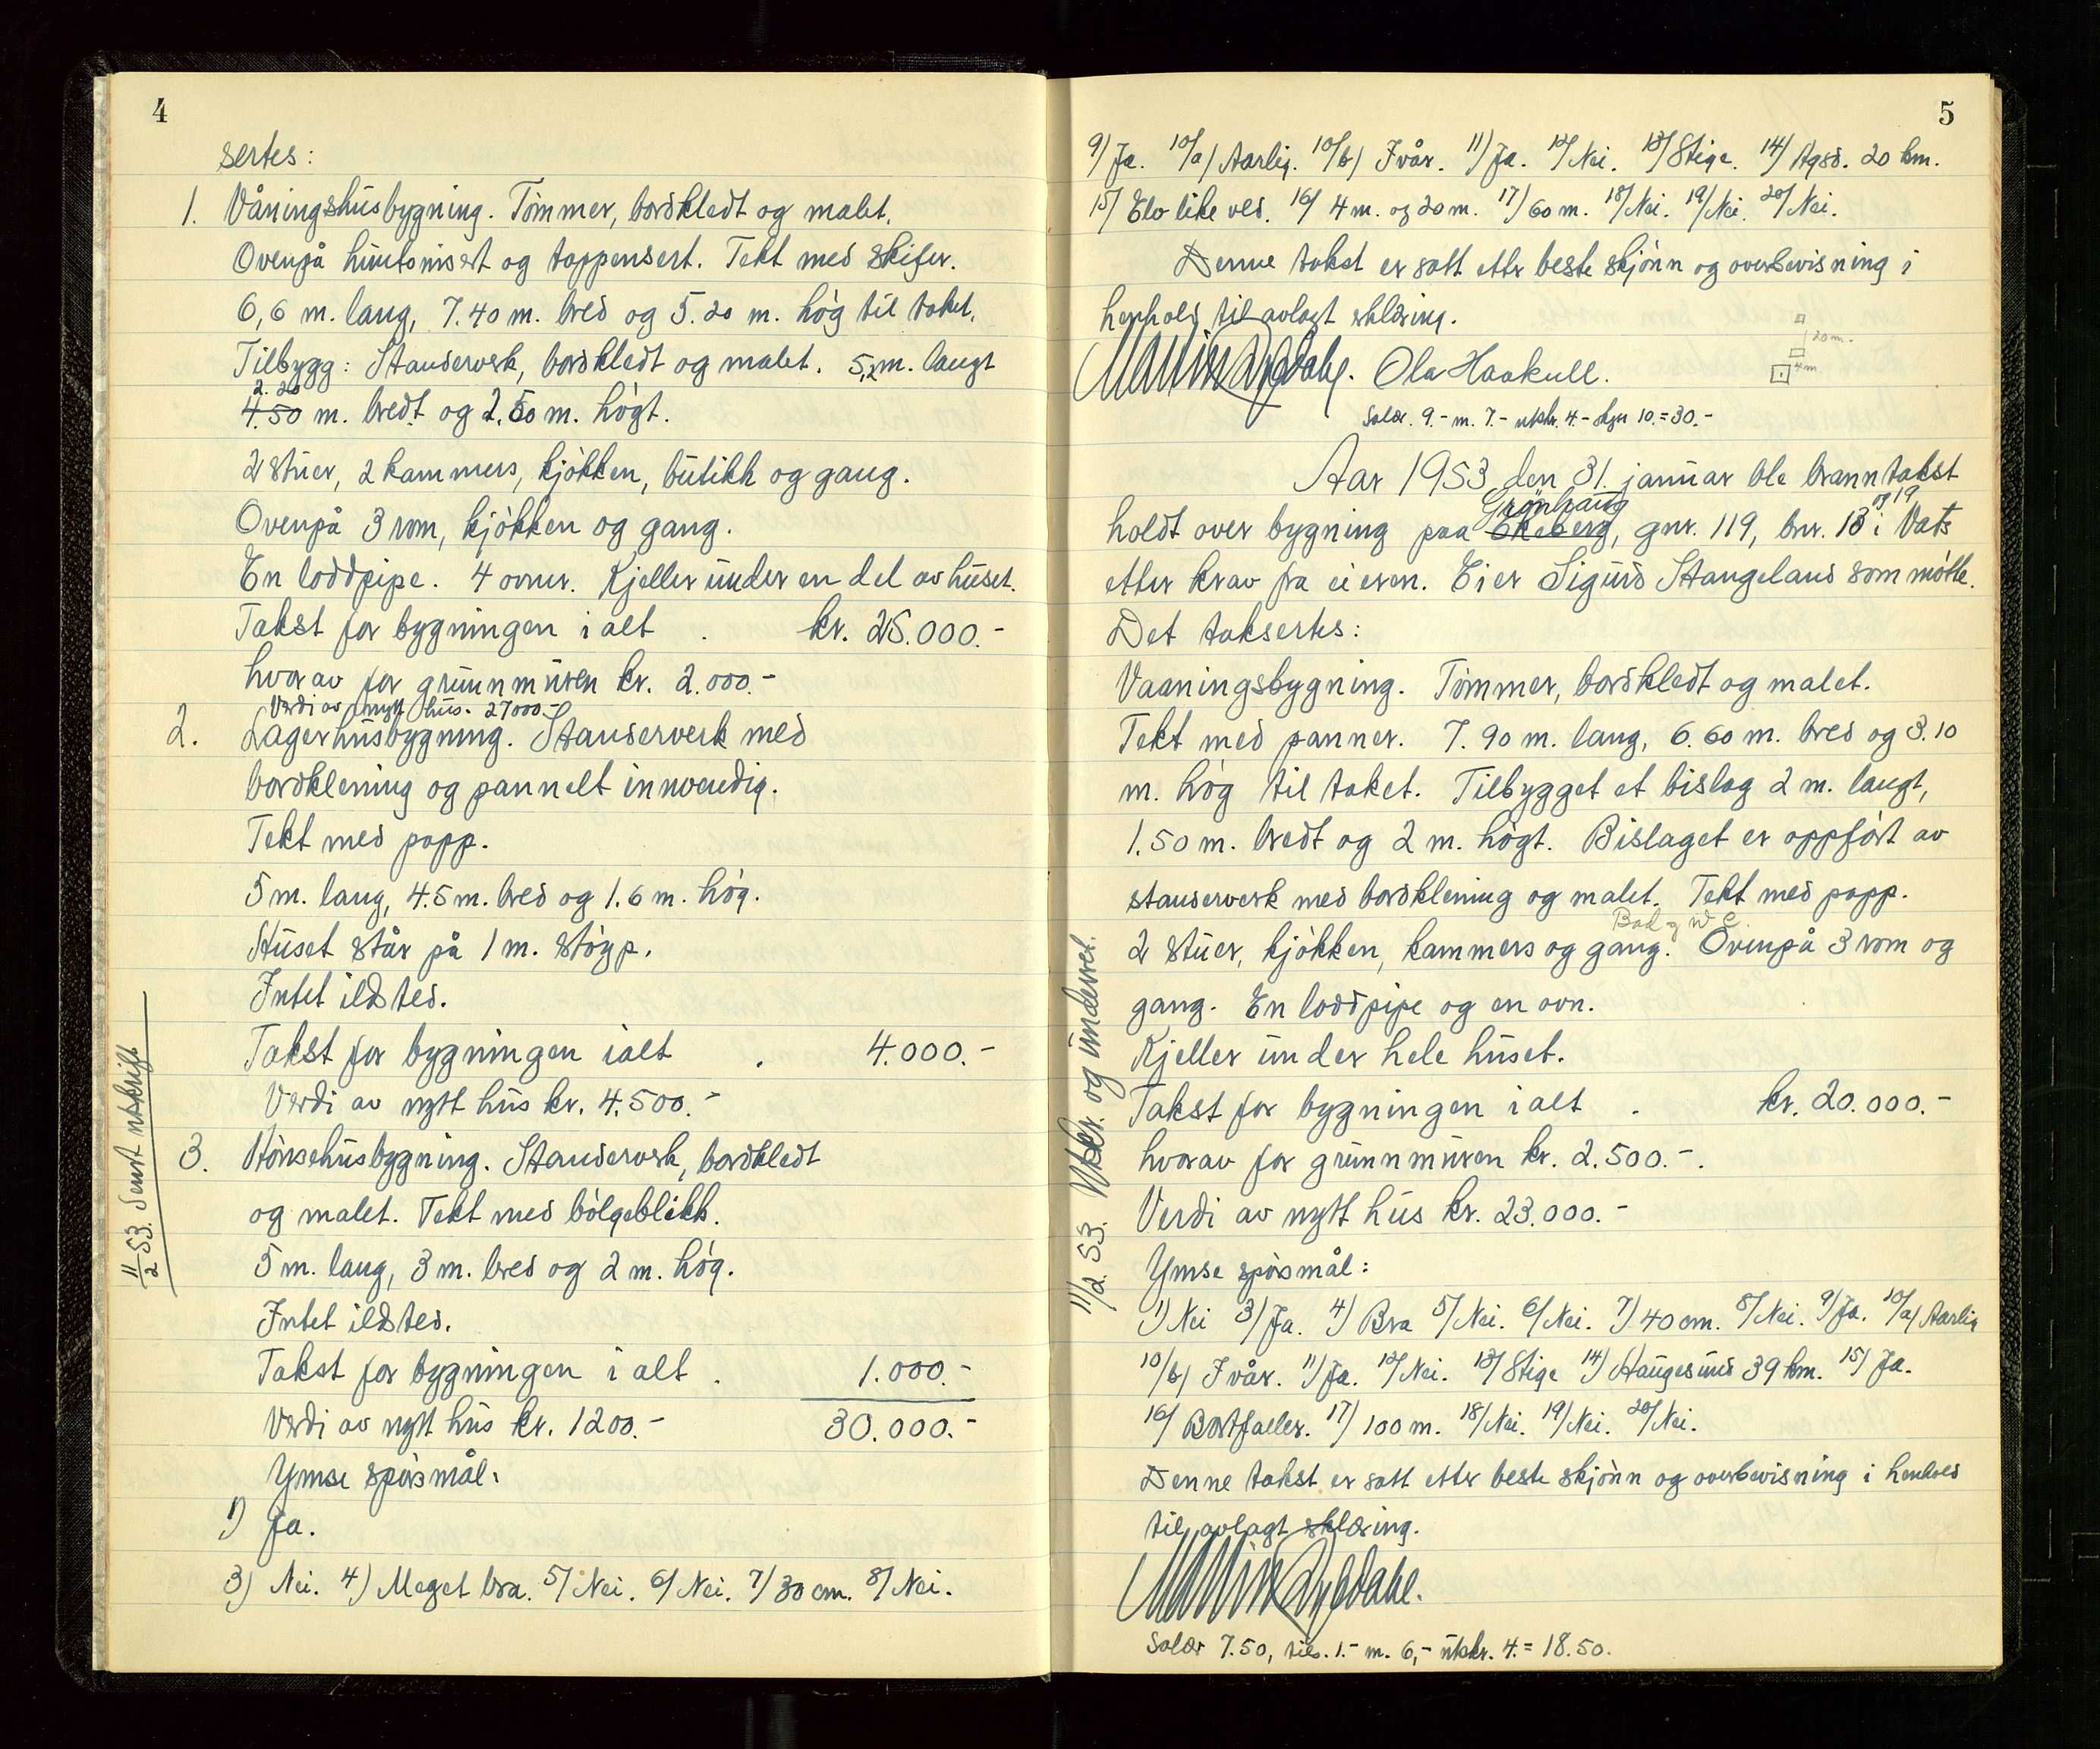 4
sertes:
1. Våningshusbygning. Tømmer, bordkledt og malet.
Ovenpå huntonisert og toppensert. Tekt med skifer.
6,6 m. lang, 7.40 m. bred og 5.20 m. høg til taket.
Tilbygg: Standerverk, bordkledt og malet. 5,2 m. langt
2.20
4.50 m. bredt og 2.50 m. høgt.
2 stuer, 2 kammers, kjøkken, butikk og gang.
Ovenpå 3 rom, kjøkken og gang.
En loddpipe. 4 ovner. Kjeller under en del av huset.
Takst for bygningen i alt . kr. 25.000.-
hvorav for grunnmuren kr. 2.000.-
Verdi av nytt hus. 27000.-
2. Lagerhusbygning. Standerverk med
bordkledning og pannelt innvendig.
Tekt med papp.
5 m. lang, 4.5 m. bred og 1.6 m. høg.
Huset står på 1 m. støyp.
Intet ildsted.
Takst for bygningen ialt . 4.000.-
Verdi av nytt hus kr. 4.500.-
3. Hønsehusbygning. Standerverk, bordkledt
og malet. Tekt med bølgeblikk.
5 m. lang, 3 m. bred og 2 m. høg.
Intet ildsted.
Takst for bygningen i alt . 1.000.-
Verdi av nytt hus kr. 1200.- 30.000.-
Ymse spørsmål:
1) Ja.
3) Nei. 4) Meget bra. 5/ Nei. 6/ Nei. 7/ 30 cm. 8/ Nei.
11/2 53. Sent utskrift
5
9/ Ja. 10/a/ Aarlig. 10/b/ I vår. 11/ Ja. 12/ Nei. 13/ Stige. 14/ Aqsd. 20 km.
15/ Elv like ved. 16/ 4 m. og 20 m. 17/ 60 m. 18/ Nei. 19/ Nei. 20/ Nei.
Denne takst er satt etter beste skjønn og overbevisning i
henhold til avlagt erklæring.
20 m.
4 m
Ola Haakull.
Salær. 9.- m. 7.- utskr. 4.- 10.= 30.-
Aar 1953 den 31. januar ble branntakst
Grønhaug og 19
holdt over bygning paa Ekeberg, gnr. 119, bnr. 13 i Vats
etter krav fra eieren. Eier Sigurd Stangeland som møtte.
Det taksertes:
Vaaningsbygning. Tømmer, bordkledt og malet.
Tekt med panner. 7.90 m. lang, 6.60 m. bred og 3.10
m. høg til taket. Tilbygget et bislag 2 m. langt,
1.50 m. bredt og 2 m. høgt. Bislaget er oppført av
standerverk med bordkledning og malet. Tekt med papp.
Bad og W C
2 stuer, kjøkken, kammers og gang. Ovenpå 3 rom og
gang. En loddpipe og en ovn.
Kjeller under hele huset.
Takst for bygningen i alt . kr. 20.000.-
hvorav for grunnmuren kr. 2.500.-.
Verdi av nytt hus kr. 23.000.-
Ymse spørsmål:
1) Nei 3) Ja. 4) Bra 5/ Nei. 6/ Nei. 7) 40 cm. 8/ Nei. 9/ Ja. 10/a/ Aarlig
10/b/ I vår. 11/ Ja. 12/ Nei. 13/ Stige 14) Haugesund 39 km. 15/ Ja.
16/ Bortfaller. 17/ 100 m. 18/ Nei. 19/ Nei. 20/ Nei.
Denne takst er satt etter beste skjønn og overbevisning i henhold
til avlagt erklæring.
Salær 7.50, tils. 1.- m. 6,- utskr. 4.= 18.50.
11/2 53. Utskr. og underret.